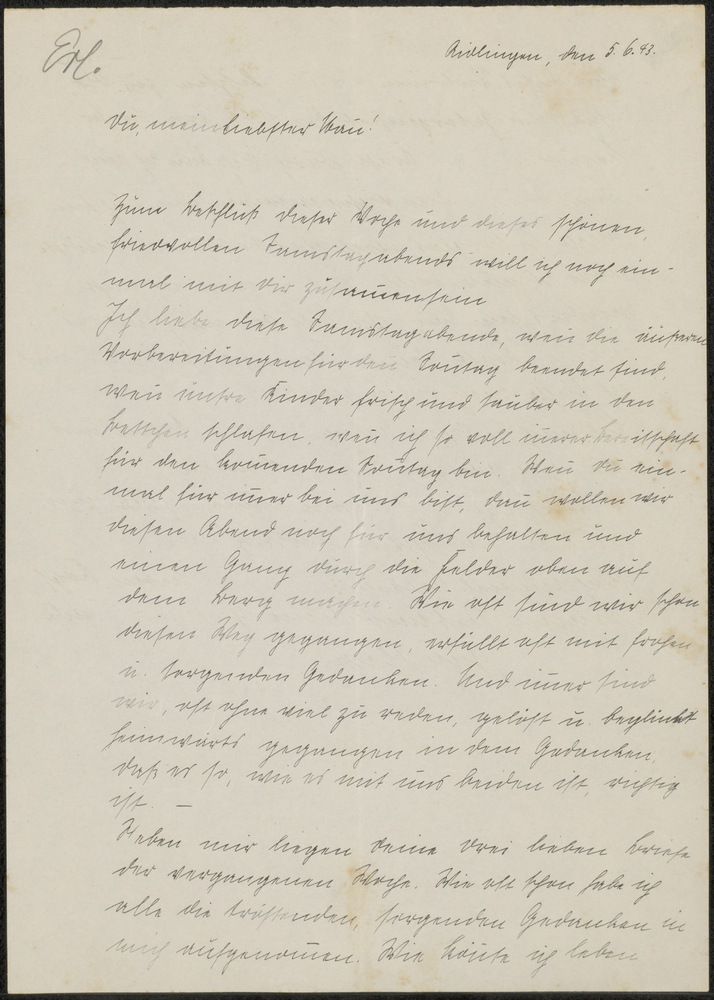 Erl.
Aidlingen, den 5.6.43.
Du, mein liebster Wau!
Zum Beschluß dieser Woche und dieses schönen,
friedvollen Samstagabends will ich noch ein-
mal mit dir zusam̅ensein
Ich liebe diese Samstagabende, wen̅ die äußeren
Vorbereitungen für den Son̅tag beendet sind,
wen̅ unsre Kinder frisch und sauber in den
Bettchen schlafen, wen̅ ich so voll in̅erer Bereitschaft
für den kom̅enden Son̅tag bin. Wen̅ du ein-
mal für im̅er bei uns bist, dan̅ wollen wir
diesen Abend noch für uns behalten und
einen Gang durch die Felder oben auf
dem Berg machen. Wie oft sind wir schon
diesen Weg gegangen, erfüllt oft mit frohen
u. sorgenden Gedanken. Und im̅er sind
wir, oft ohne viel zu reden, gelöst u. beglückt
heimwärts gegangen in dem Gedanken,
daß es so, wie es mit uns beiden ist, richtig
ist. —
Neben mir liegen deine drei lieben Briefe
der vergangenen Woche. Wie oft schon habe ich
alle die tröstenden, sorgenden Gedanken in
mich aufgenom̅en. Wie kön̅te ich leben